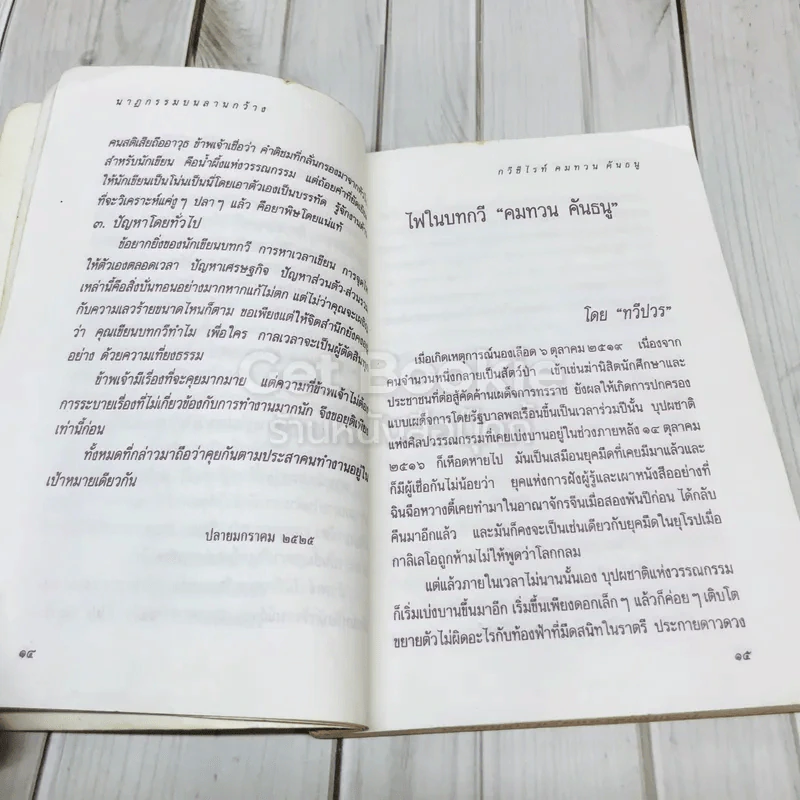 นาฏกรรมบนลานกว้าง
คนสติเสียถืออาวุธ ข้าพเจ้าเชื่อว่า คำติชมที่กลั่นกรองมาจาก
สำหรับนักเขียน คือน้ำผึ้งแห่งวรรณกรรม แต่ถ้อยคำที่
ให้นักเขียนเป็นโน่นเป็นนี่โดยเอาตัวเองเป็นบรรทัด รู้จักงาน
ที่จะวิเคราะห์แค่งูๆ ปลาๆ แล้ว คือยาพิษโดยแน่แท้
๓. ปัญหาโดยทั่วไป
ข้อยากยิ่งของนักเขียนบทกวี การหาเวลาเขียน การ
ให้ตัวเองตลอดเวลา ปัญหาเศรษฐกิจ ปัญหาส่วนตัว-ส่วนรวม
เหล่านี้คือสิ่งบั่นทอนอย่างมากหากแก้ไม่ตก แต่ไม่ว่าคุณจะ
กับความเลวร้ายขนาดไหนก็ตาม ขอเพียงแต่ให้จิตสำนึกยัง
ว่า คุณเขียนบทกวีทำไม เพื่อใคร กาลเวลาจะเป็นผู้ตัดสิน
อย่าง ด้วยความเที่ยงธรรม
ข้าพเจ้ามีเรื่องที่จะคุยมากมาย แต่ความที่ข้าพเจ้าไม่
การระบายเรื่องที่ไม่เกี่ยวข้องกับการทำงานมากนัก จึงขอยุติเพียง
เท่านี้ก่อน
ทั้งหมดที่กล่าวมาถือว่าคุยกันตามประสาคนทำงานอยู่ใน
เป้าหมายเดียวกัน
ปลายมกราคม ๒๕๒๕
๑๔
กวีซีไรท์ คมทวน คันธนู
ไฟในบทกวี “คมทวน คันธนู”
โดย “ทวีปวร”
เมื่อเกิดเหตุการณ์นองเลือด ๖ ตุลาคม ๒๕๑๙ เนื่องจาก
คนจำนวนหนึ่งกลายเป็นสัตว์ป่า เข้าเข่นฆ่านิสิตนักศึกษาและ
ประชาชนที่ต่อสู้คัดค้านเผด็จการทรราช ยังผลให้เกิดการปกครอง
แบบเผด็จการโดยรัฐบาลพลเรือนขึ้นเป็นเวลาร่วมปีนั้น บุปผชาติ
แห่งศิลปวรรณกรรมที่เคยเบ่งบานอยู่ในช่วงภายหลัง ๑๔ ตุลาคม
๒๕๑๖ ก็เหือดหายไป มันเป็นเสมือนยุคมืดที่เคยมีมาแล้วและ
ก็มีผู้เชื่อกันไม่น้อยว่า ยุคแห่งการฝังผู้รู้และเผาหนังสืออย่างที่
ฉินฉือหวางตี้เคยทำมาในอาณาจักรจีนเมื่อสองพันปีก่อน ได้กลับ
คืนมาอีกแล้ว และมันก็คงจะเป็นเช่นเดียวกับยุคมืดในยุโรปเมื่อ
กาลิเลโอถูกห้ามไม่ให้พูดว่าโลกกลม
แต่แล้วภายในเวลาไม่นานนั้นเอง บุปผชาติแห่งวรรณกรรม
ก็เริ่มเบ่งบานขึ้นมาอีก เริ่มขึ้นเพียงดอกเล็กๆ แล้วก็ค่อยๆ เติบโต
ขยายตัวไม่ผิดอะไรกับท้องฟ้าที่มืดสนิทในราตรี ประกายดาวดวง
๑๕
Get Bookie
ร้านหนังสือนุ๊กกี้